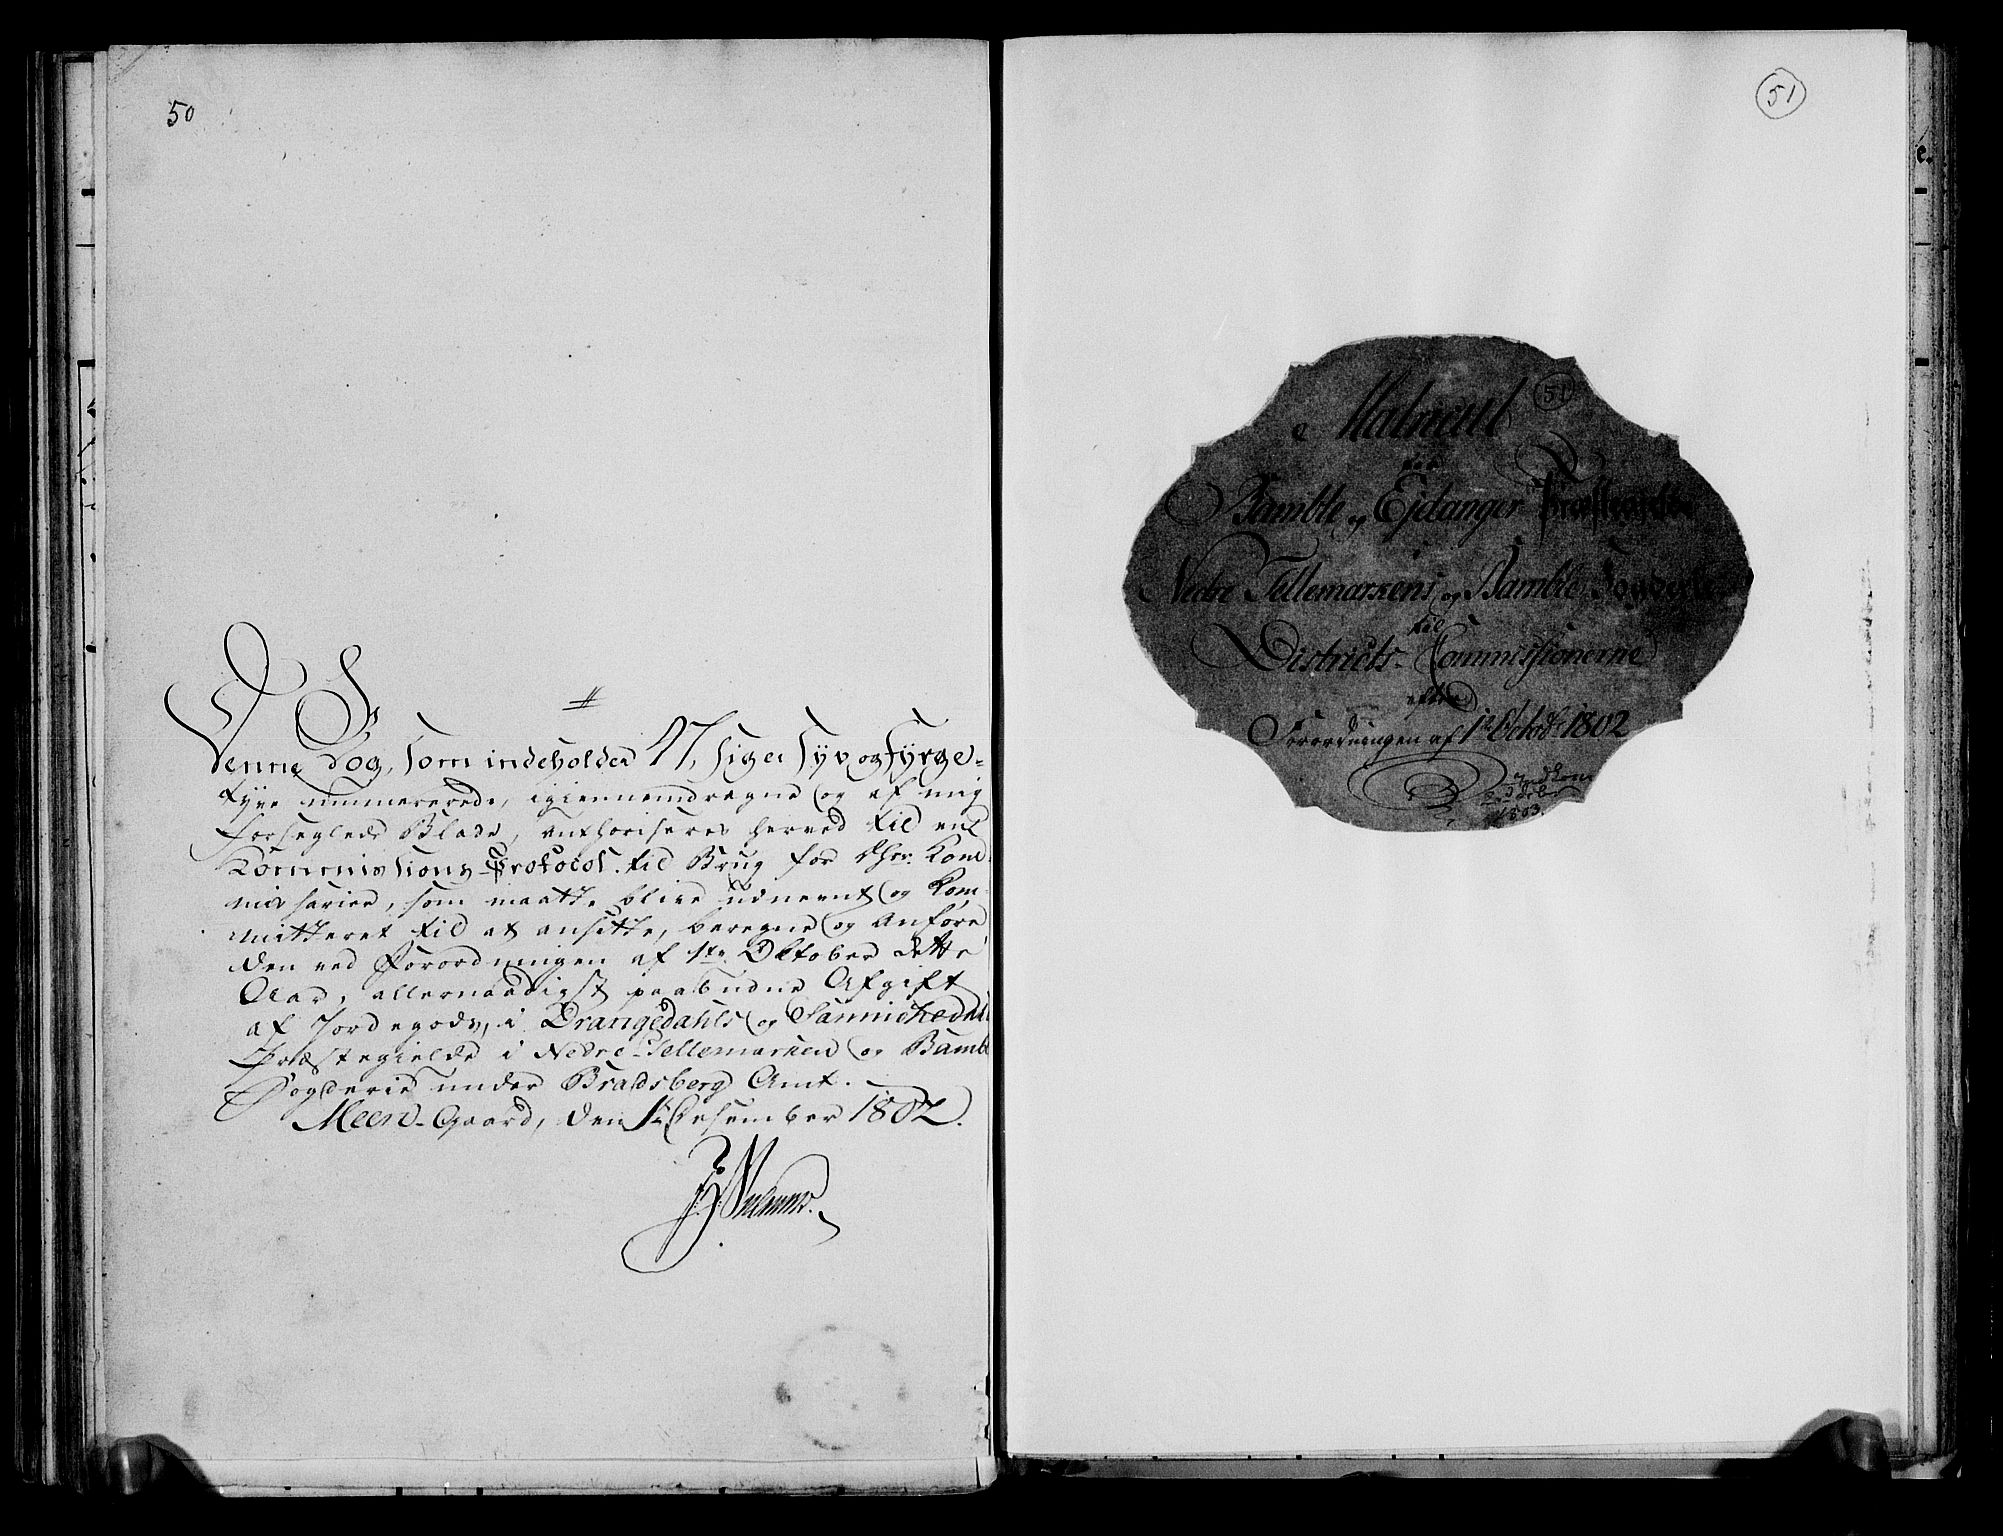 50
Denne Bog, som indeholder 47, siger Syv og Fyrge-
tyve nummererede, igiennemdragne og af mig
forseglede Blade, authoriseres herved til en
Kommissions-Protocol til Brug for Kom-
missarier, som maatte blive udnevnt og Kom-
mitteret til at ansætte, beregne og anføre
den ved Forordningen af 1te Oktober dette
Aar, allernaadigst paabudne Afgift
af Jordegods, i Drangedahls og Sannichedals
Præstegielde i Nedre-Tellemarken og Bamble
Fogderie under Bradsberg Amt.
Meen-Gaard, den Desember 1802.
51
Matricul 51
for
Bamble og Ejdanger Præstegielde
i
Nedre Tellemarkens og Bamble Fogderie
til
Districts-Commissionerne
efter
Forordningen af 1te Octobr 1802
Indkom
1803.